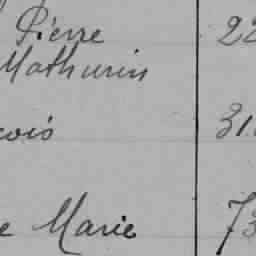 Pierre 22
Mathurin
çois 31
e Marie 73